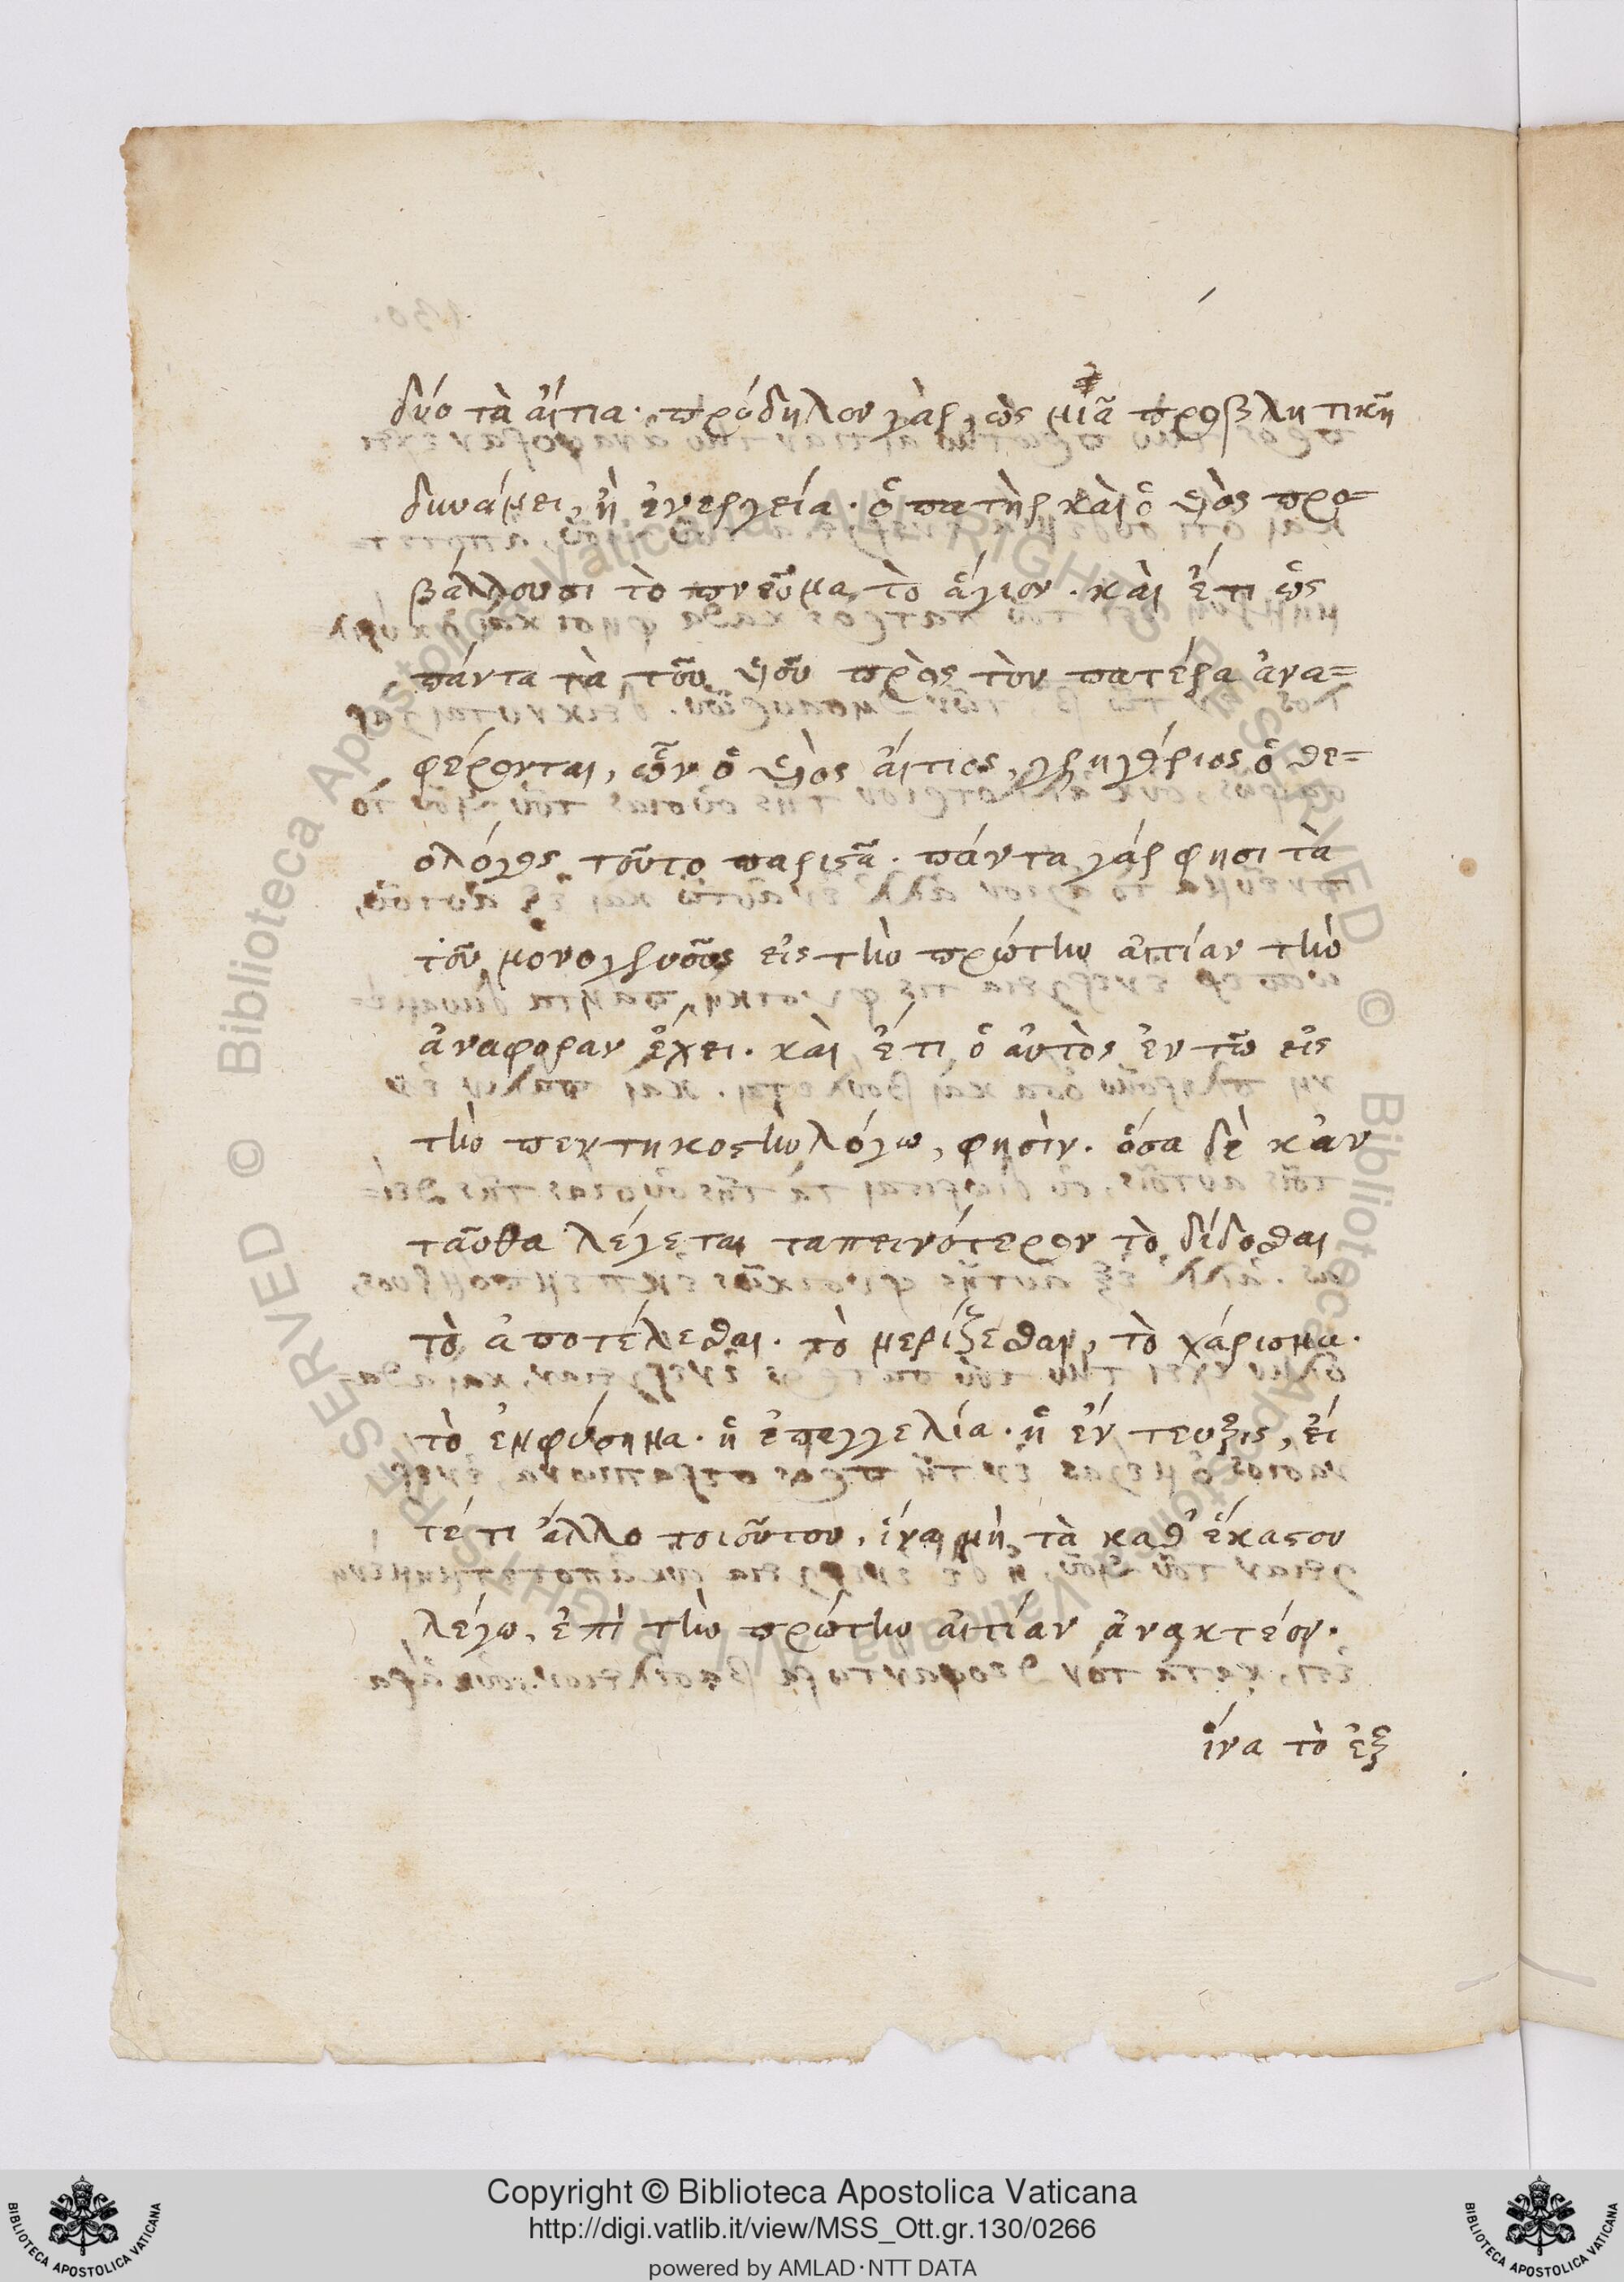 δύο τὰ αἴτια· πρόδηλον γὰρ, ὡς μιᾶ προβλητικῆ
δυνάμει, ἢ ἐνεργεία· ὁ πατὴρ καὶ ὁ υἱὸς προ=
βάλλουσι τὸ πνεῦμα τὸ ἅγιον. καὶ ἔτι ὡς
πάντα τὰ τοῦ υἱοῦ πρὸς τὸν πατέρα ἀνα=
φέρονται, ὧν ὁ υἱὸς αἴτιος, γρηγόριος ὁ θε=
ολόγος τοῦτο παριστᾶ. πάντα γάρ φησι τὰ
τοῦ μονογενοῦς εἰς τὴν πρώτην αἰτίαν τὴν
ἀναφορὰν ἔχει. καὶ ἔτι ὁ αὐτὸς ἐν τῶ εἰς
τὴν πεντηκοστὴν λόγω, φησὶν. ὅσα δὲ κἀν
ταῦθα λέγεται ταπεινότερον τὸ δίδοσθαι
τὸ ἀποτέλεσθαι. τὸ μερίζεσθαι, τὸ χάρισμα.
τὸ ἐμφύσημα. ἡ ἐπαγγελία. ἡ ἔν τευξις, εἴ
τέ τι ἄλλο τοιοῦτον, ἵνα μὴ τὰ καθ' ἕκαστον
λέγω, ἐπὶ τὴν πρώτην αἰτίαν ἀνακτέον.
ἵνα τὸ ἐξ
Copyright © Biblioteca Apostolica Vaticana
http://digi.vatlib.it/view/MSS_Ott.gr.130/0266
powered by AMLAD·NTT DATA
BIBLIOTECA APOSTOLICA VATICANA
BIBLIOTECA APOSTOLICA VATICANA